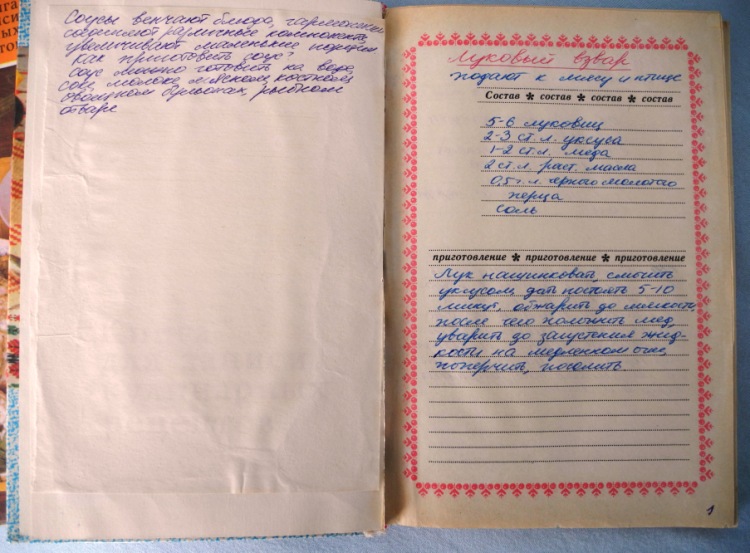 Соусы венчают блюда, гармонично
соединяют различные компоненты
увеличивают маленькие порции
Как приготовить соус?
Соус можно готовить на воде,
соке, молоке, мясном, костном,
овощном бульонах, рыбном
отваре
Луковый взвар
подают к мясу и птице
Состав * состав * состав * состав
5-6 луковиц
2-3 ст. л. уксуса
1-2 ст. л. меда
2 ст. л. раст. масла
0,5 ч. л. черного молотого
перца
соль
приготовление * приготовление * приготовление
Лук нашинковать, смочить
уксусом, дать постоять 5-10
минут, обжарить до мягкости,
после чего положить мед,
уварить до загустения жид-
кости на медленном огне,
поперчить, посолить
1